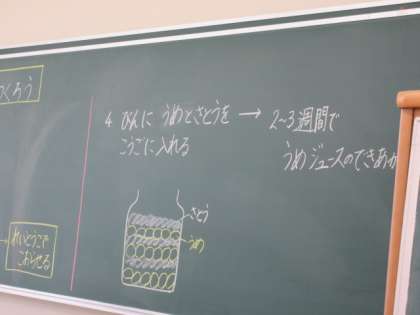 つくろう
4 びんに うめとさとうを → 2~3週間で
こうごに入れる
うめジュースのできあが
さとう
うめ
れいとうこで
こおらせる